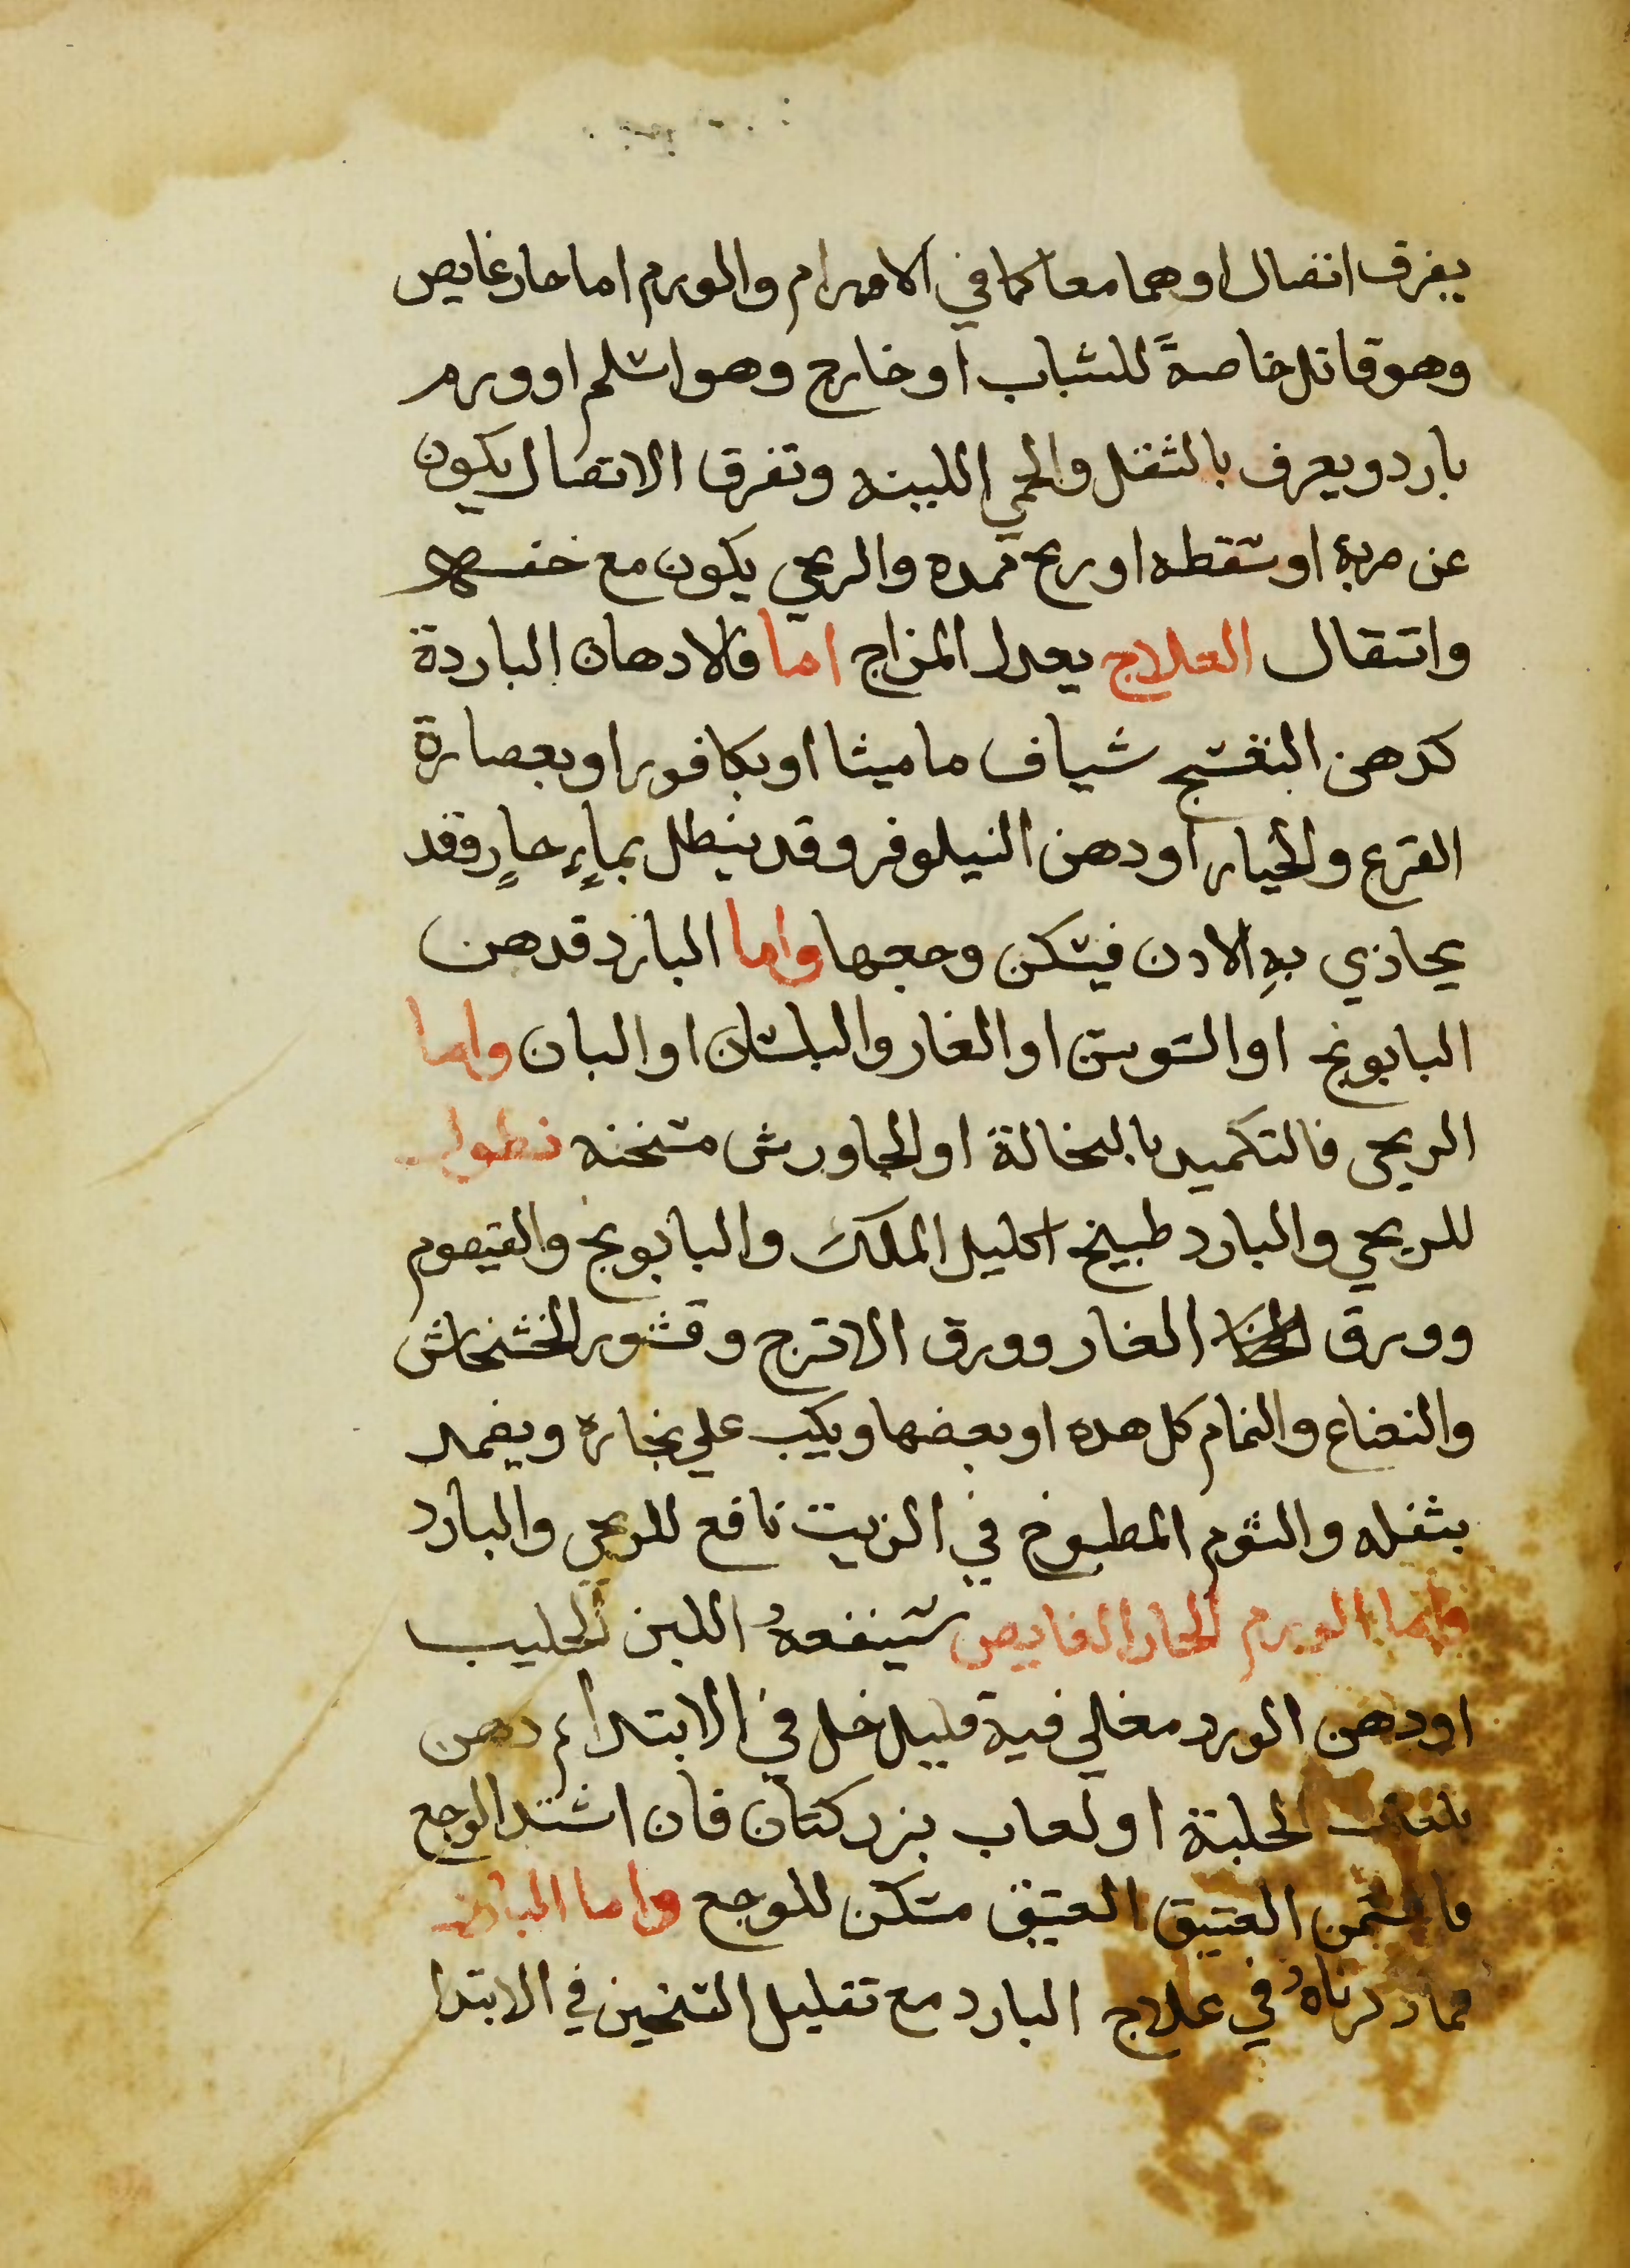 يفرق اتصال او هما معا كما في الاورام والورم اما حار غايص
وهو قاتل خاصةً للشباب او خارج وهو اسلم او ورم
بارد ويعرف بالثقل والحمي اللينه وتفرق الاتصال يكون
عن ضربة او سقطه او ريح تمدده والريحي يكون مع خفه
وانتقال العلاج يعدل المزاج اما فالادهان الباردة
كدهن البنفسج شياف ماميثا او بكافور او بعصارة
القرع والخيار او دهن النيلوفر وقد ينطل بماءٍ حارٍ وقد
يحاذي بهِ الادن فيسكن وجعها واما البارد فدهن
البابونج او السوسن او الغار والبلسان او البان واما
الريحي فالتكميد بالنخالة او الجاورش مسخنه نطول
للريحي والبارد طبيخ اكليل الملك والبابونج والقيصوم
وورق الغار وورق الاترج وقشور الخشخاش
والنعناع والنمام كل هده او بعضها ويكب علي بخاره ويضمد
بثفله والثوم المطبوخ في الزيت نافع للريحي والبارد
واما الورم الحار الغايص سينفعهُ اللبن الحليب
او دهن الورد مغلي فية قليل خل في الابتداء دهن
بلعاب الحلبة او لعاب بزر كتان فان اشتد الوجع
فالسمن العتيق العتيق مسكن للوجع واما البارد
مما دكرناهُ في علاج البارد مع تقليل التسخين في الابتدا